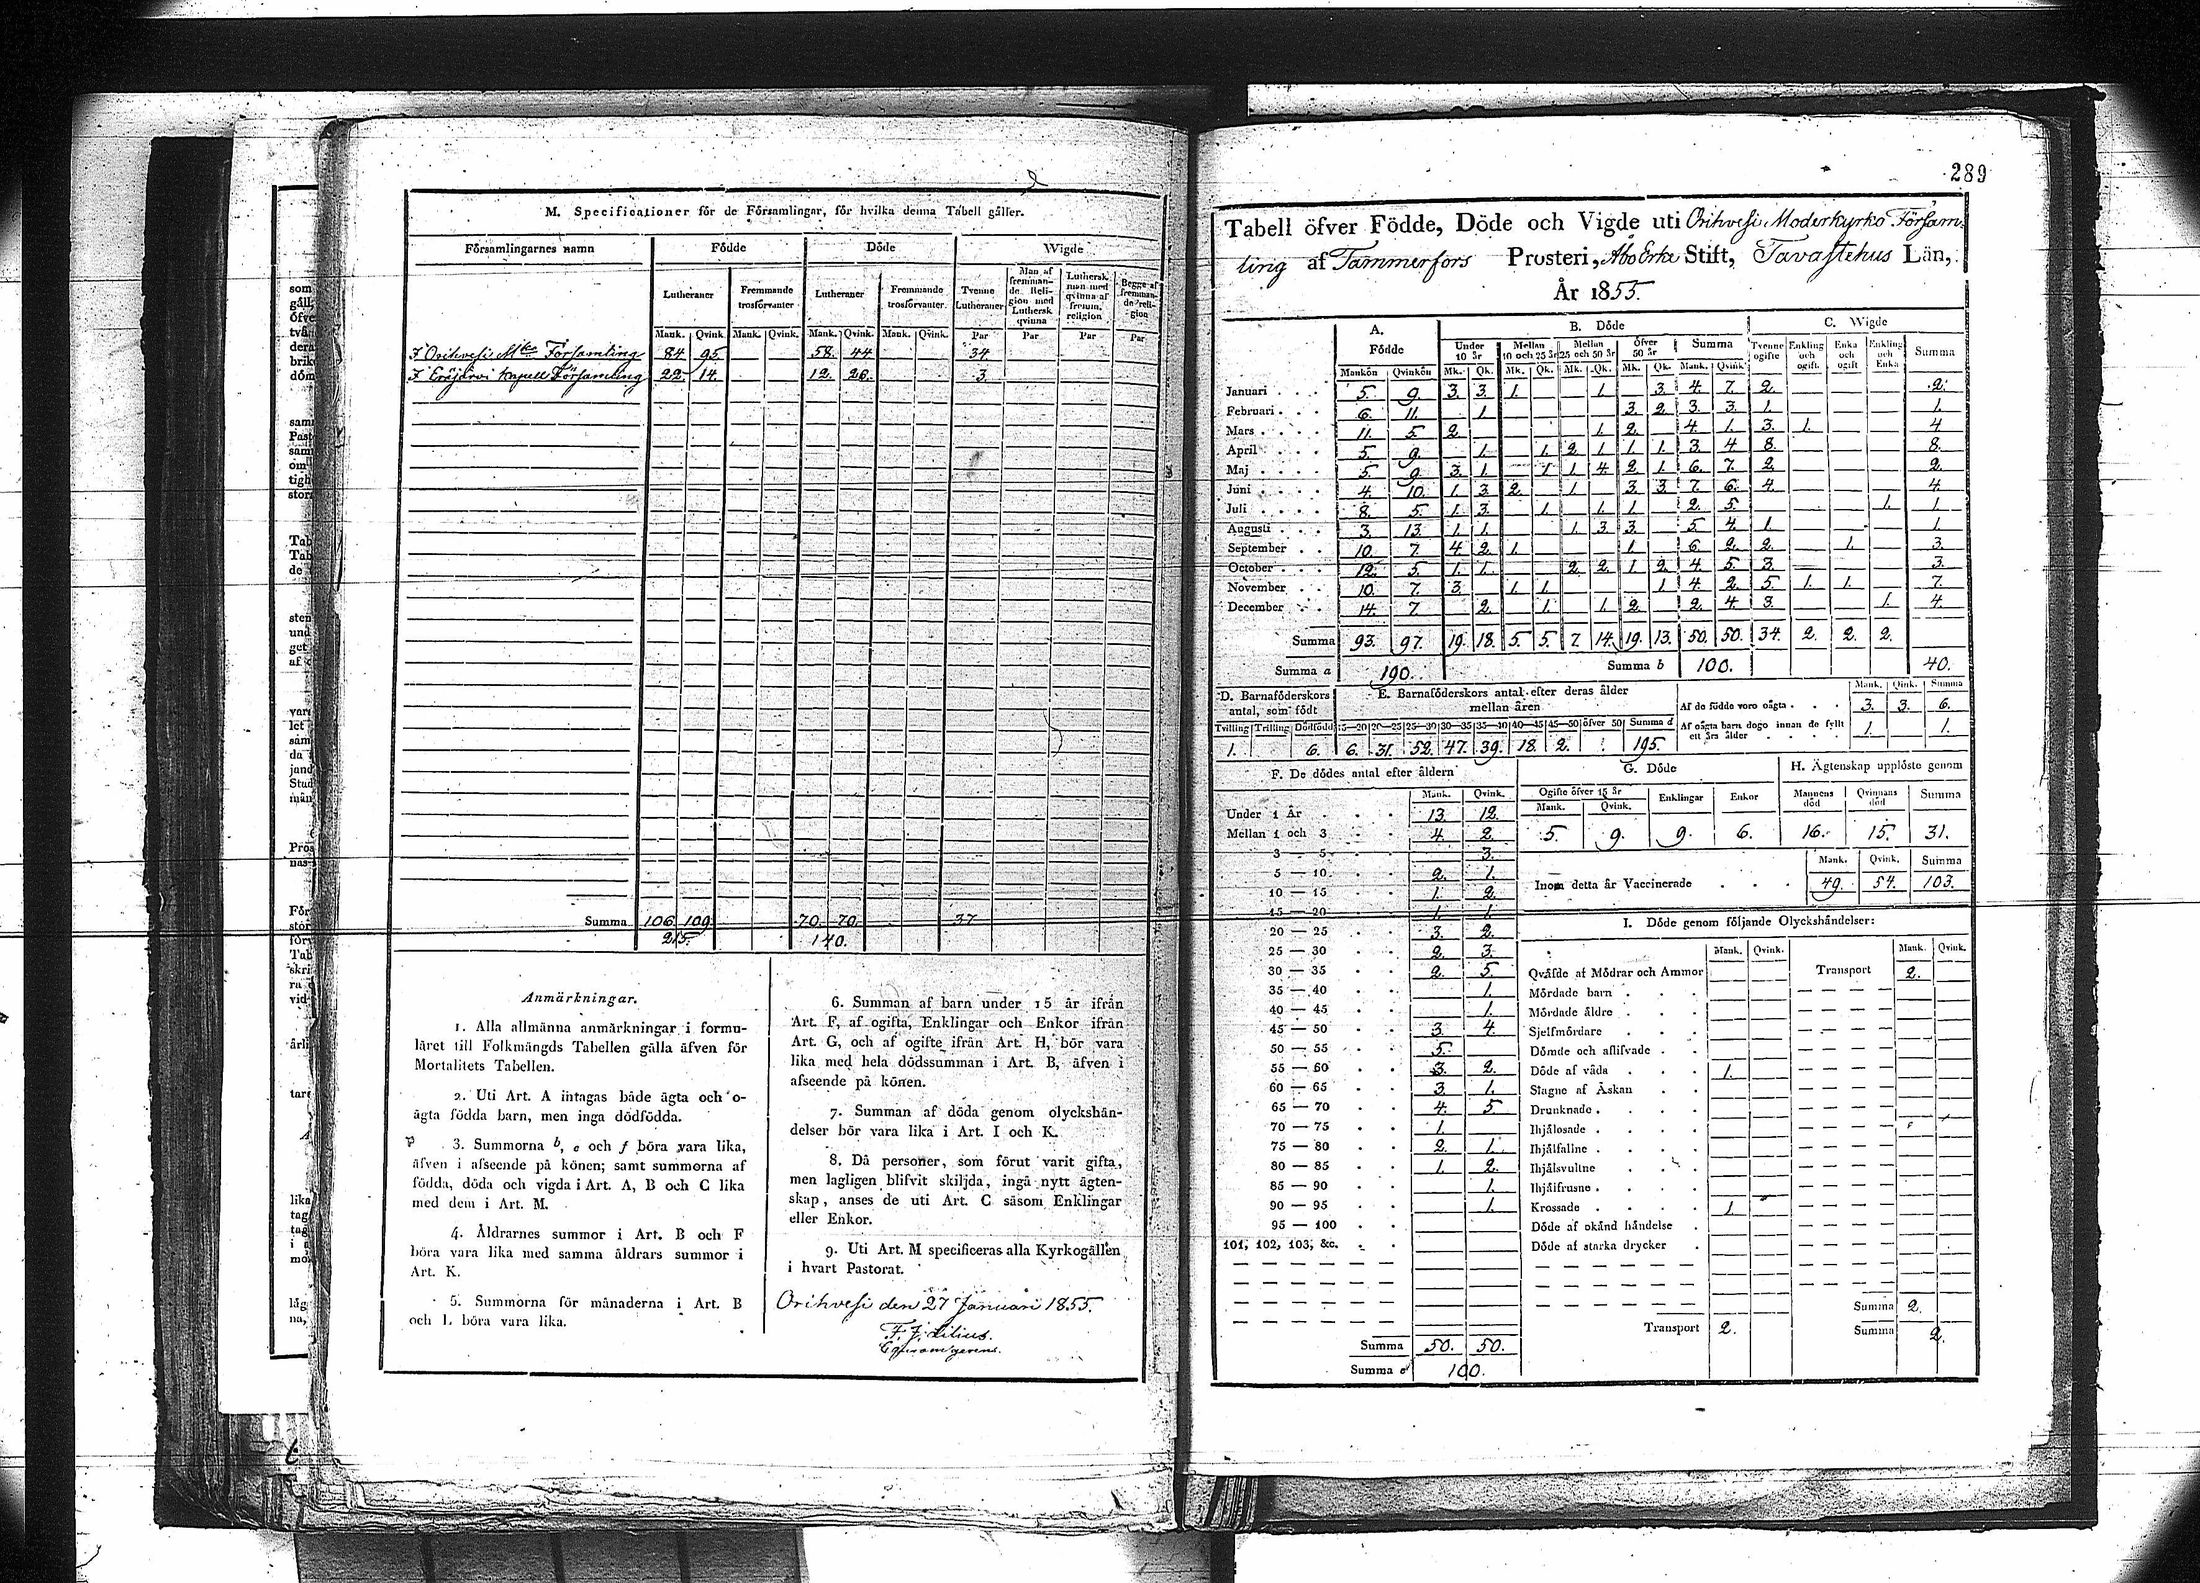 M. Specificationer för de Församlingar, för hvilka denna Tabell gäller.
Församlingarnes namn Födde Döde Wigde
Lutheraner Fremmande trosförvanter Lutheraner Fremmande trosförvanter Tvenne Lutheraner Man af fremmande Religion med Luthersk qvinna Luthersk man med qvinna af fremm. religion Begge af fremmande religion
Mank. Qvink. Mank. Qvink. Mank. Qvink. Mank. Qvink. Par Par Par Par
I Orihvesi Mko Församling 84 95. 58. 44 34
I Eräjärvi Kapell Församling 22. 14. 12. 26. 3.
Summa 106. 109. 70. 70. 37
215. 140.
Anmärkningar.
1. Alla allmänna anmärkningar i formu-
läret till Folkmängds Tabellen gälla äfven för
Mortalitets Tabellen.
2. Uti Art. A intagas både ägta och o-
ägta födda barn, men inga dödfödda.
3. Summorna b, e och f böra vara lika,
äfven i afseende på könen; samt summorna af
födda, döda och vigda i Art. A, B och C lika
med dem i Art. M.
4. Åldrarnes summor i Art. B och F
böra vara lika med samma åldrars summor i
Art. K.
5. Summorna för månaderna i Art. B
och L böra vara lika.
6. Summan af barn under 15 år ifrån
Art. F, af ogifta, Enklingar och Enkor ifrån
Art. G, och af ogifte ifrån Art. H, bör vara
lika med hela dödssumman i Art. B, äfven i
afseende på könen.
7. Summan af döda genom olyckshän-
delser bör vara lika i Art. I och K.
8. Då personer, som förut varit gifta,
men lagligen blifvit skiljda, ingå nytt ägten-
skap, anses de uti Art. C såsom Enklingar
eller Enkor.
9. Uti Art. M specificeras alla Kyrkogällen
i hvart Pastorat.
Orihvesi den 27 Januari 1855.
F. J. Lilius.
289
Tabell öfver Födde, Döde och Vigde uti Orihvesi Moderkyrko Försam-
ling af Tammerfors Prosteri, Åbo Erke Stift, Tavastehus Län,
År 1855.
A. Födde B. Döde C. Wigde
Under 10 år Mellan 10 och 25 år Mellan 25 och 50 år Öfver 50 år Summa Tvenne ogifte Enkling och ogift. Enka och ogift Enkling och Enka Summa
Mankön Qvinkön Mk. Qk. Mk. Qk. Mk. Qk. Mk. Qk. Mank. Qvink.
Januari 5. 9. 3. 3. 1. 1. 3. 4. 7. 2. 2.
Februari 6. 11. 1. 3. 2. 3. 3. 1. 1.
Mars 11. 5. 2. 1. 2. 4. 1. 3. 1. 4
April 5. 9. 1. 1. 2. 1. 1. 1. 3. 4 8. 8.
Maj 5. 9. 3. 1. 1 1. 4. 2. 1. 6. 7. 2. 2.
Juni 4. 10. 1. 3. 2. 1. 3. 3. 7. 6. 4. 4
Juli 8. 5. 1. 3. 1. 1. 1. 2. 5. 1. 1
Augusti 3. 13. 1. 1. 1. 3. 3. 5. 4. 1. 1
September 10. 7. 4. 2. 1. 1. 6. 2. 2. 1. 3.
October 12. 5. 1. 1. 2. 2. 1. 2. 4. 5. 3. 3.
November 10. 7. 3. 1. 1. 1. 4. 2. 5. 1. 1. 7.
December 14. 7. 2. 1. 1. 2. 2. 4. 3. 1. 4.
Summa 93. 97. 19. 18. 5. 5. 7. 14. 19. 13. 50. 50. 34. 2. 2. 2.
Summa a 190. Summa b 100. 40.
D. Barnaföderskors antal, som födt
Tvilling Trilling Dödfödd
1. 6.
E. Barnaföderskors antal efter deras ålder
mellan åren
15—20 20—25 25—30 30—35 35—40 40—45 45—50 öfver 50 Summa d
6. 31. 52. 47. 39. 18. 2. 195.
Mank. Qink. Summa
Af de födde voro oägta 3. 3. 6.
Af oägta barn dogo innan de fyllt
ett års ålder 1. 1.
F. De dödes antal efter åldern
Mank. Qvink.
Under 1 År 13. 12.
Mellan 1 och 3 4. 2.
3 — 5 3.
5 — 10 2. 1.
10 — 15 1. 2.
15 — 20 1. 1.
20 — 25 3. 2.
25 — 30 2. 3.
30 — 35 2. 5.
35 — 40 1.
40 — 45 1.
45 — 50 3. 4.
50 — 55 5.
55 — 60 3. 2.
60 — 65 3. 1.
65 — 70 4. 5
70 — 75 1.
75 — 80 2. 1.
80 — 85 1. 2.
85 — 90 1.
90 — 95 1.
95 — 100
101, 102, 103, &c.
Summa 50. 50.
Summa e 100.
G. Döde
Ogifte öfver 15 år Enklingar Enkor
Mank. Qvink.
5. 9. 9. 6.
H. Ägtenskap upplöste genom
Mannens död Qvinnans död Summa
16. 15. 31.
Mank. Qvink. Summa
Inom detta år Vaccinerade 49. 54. 103.
I. Döde genom följande Olyckshändelser:
Mank. Qvink. Mank. Qvink.
Qväfde af Mödrar och Ammor Transport 2.
Mördade barn
Mördade äldre
Sjelfmördare
Dömde och aflifvade
Döde af våda 1.
Slagne af Åskan
Drunknade
Ihjälosade
Ihjälfallne
Ihjälsvultne
Ihjälfrusne
Krossade 1.
Döde af okänd händelse
Döde af starka drycker
Summa 2.
Transport 2. Summa 2.